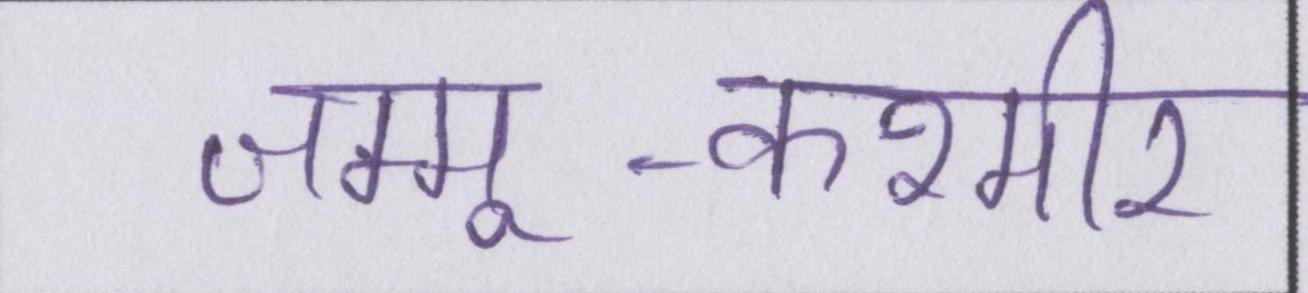 जम्मू-कश्मीर